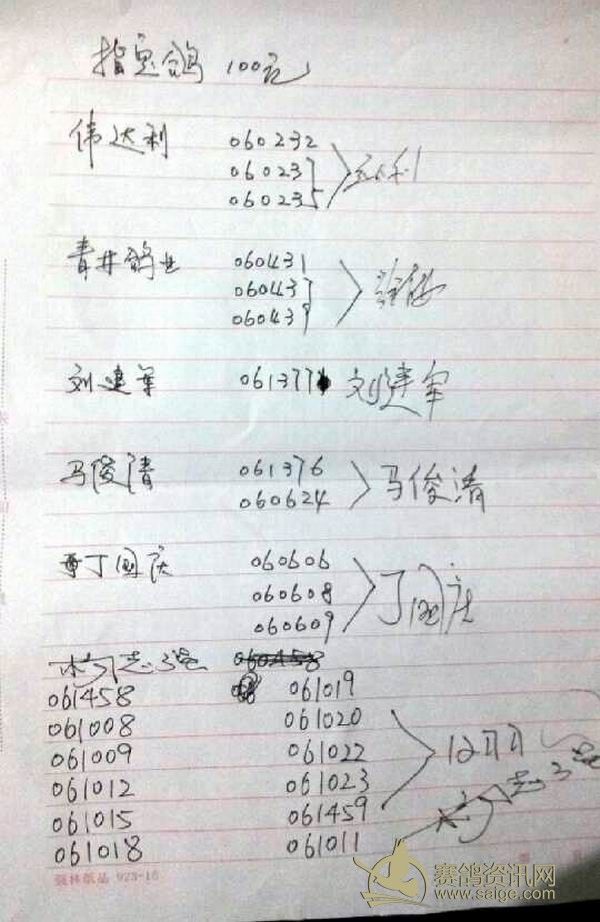 指定鸽 100元
伟达利 060232
060237
060235
青井鸽业 060431
060437
060439
刘建军 061377 刘建军
马俊清 061376
060624 马俊清
丁国庆 060606
060608
060609 丁国庆
杨志强
061458 061019
061008 061020
061009 061022
061012 061023
061015 061459
061018 061011
杨志强
强林纸品 923-16
赛鸽资讯网
www.saige.com